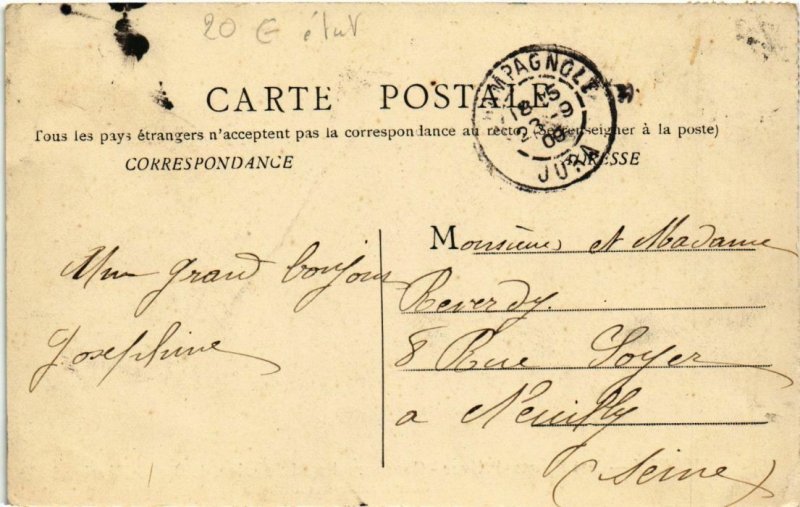 20 € état
CARTE POSTALE
Tous les pays étrangers n'acceptent pas la correspondance au recto (Se renseigner à la poste)
CORRESPONDANCE
ADRESSE
CHAMPAGNOLE
18 15
23 -9
09
JURA
Un grand bonjour
Josephine
Monsieur et Madame
Reverdy.
8 Rue Soyer
a Neuilly
(Seine)